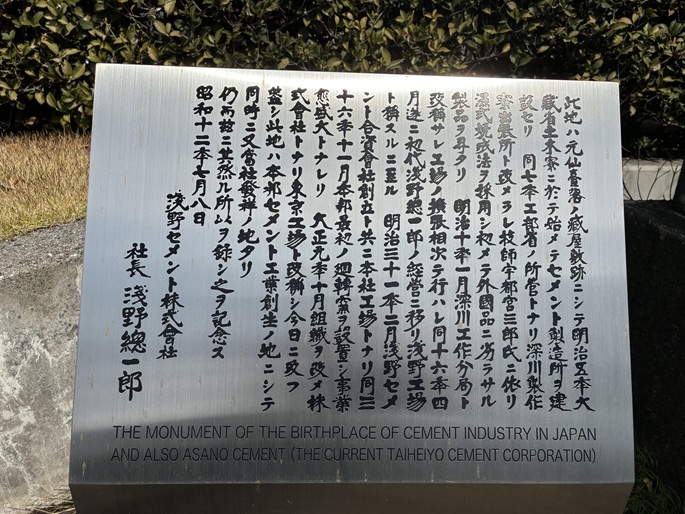 此地ハ元仙臺藩ノ蔵屋敷跡ニシテ明治五年大
蔵省土木寮ニ於テ始メテセメント製造所ヲ建
設セリ 同七年工部省ノ所管トナリ深川製作
寮出張所ト改メラレ技師宇都宮三郎氏ニ依リ
湿式焼成法ヲ採用シ初メテ外國品ニ劣ラサル
製品ヲ得タリ 明治十年一月深川工作分局ト
改稱サレ工場ノ擴張相次テ行ハレ同十六年四
月遂ニ初代浅野總一郎ノ経營ニ移リ浅野工場
ト稱スルニ至ル 明治三十一年二月浅野セメ
ント合資會社創立ト共ニ本社工場トナリ同三
十六年十一月本邦最初ノ廻轉窯ヲ設置シ事業
愈盛大トナレリ 大正元年十月組織ヲ改メ株
式會社トナリ東京工場ト改稱シ今日ニ及フ
蓋シ此地ハ本邦セメント工業創生ノ地ニシテ
同時ニ又當社發祥ノ地タリ
仍而茲ニ其然ル所以ヲ録シ之ヲ記念ス
昭和十二年七月八日
浅野セメント株式會社
社長 浅野總一郎
THE MONUMENT OF THE BIRTHPLACE OF CEMENT INDUSTRY IN JAPAN
AND ALSO ASANO CEMENT (THE CURRENT TAIHEIYO CEMENT CORPORATION)